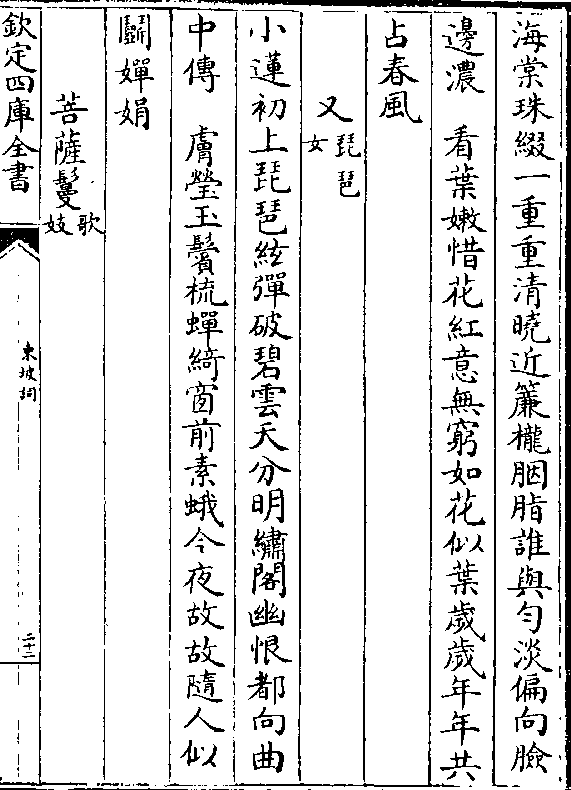 海棠珠綴一重重清曉近簾櫳胭脂誰與勻淡偏向臉
邊濃　看葉嫩惜花紅意無窮如花似葉歲歲年年共
占春風
又琵琶女
小蓮初上琵琶絃彈破碧雲天分明繡閣幽恨都向曲
中傳　膚瑩玉鬢梳蟬綺窗前素蛾今夜故故隨人似
鬬嬋娟
菩薩鬘歌妓
欽定四庫全書
東坡詞
二十二